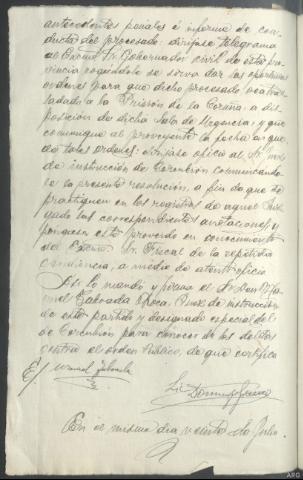 antecedentes penales é informe de con-
ducta del procesado: diríjase telegrama
al Excmo. Sr. Gobernador civil de esta pro-
vincia rogándole se sirva dar las oportunas
ordenes para que dicho procesado sea tras-
ladado a la Prisión de la Coruña a dis-
posición de dicha Sala de Urgencia, y que
comunique al proveyente la fecha en que
da tales ordenes: diríjase oficio al Sr. Juez
de instrucción de Corcubión comunicando-
le la presente resolución, a fin de que se
practiquen en los registros de aquel Juz-
gado las correspondientes anotaciones, y
póngase este proveido en conocimiento
del Excmo. Sr. Fiscal de la repetida
Audiencia, a medio de atento oficio
Así lo mandó y firma el Sr. Don Ma-
nuel Taboada Juez de instrucción
de este partido y designado especial del
de Corcubión para conocer de los delitos
contra el orden Público, de que certifico
E/ Manuel Taboada
En el mismo dia veinte de Julio.